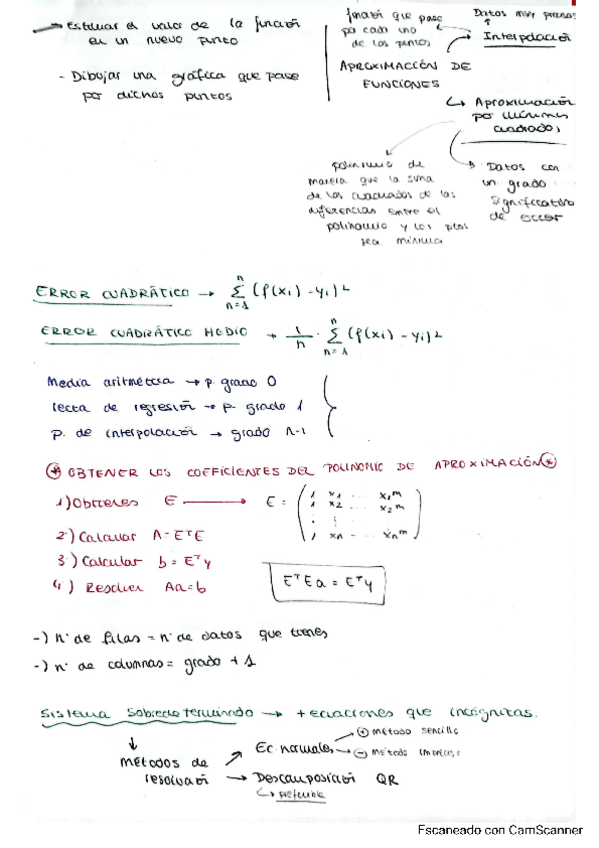 → Estimar el valor de la función
en un nuevo punto
- Dibujar una gráfica que pase
por dichos puntos
función que pase
por cada uno
de los puntos
Datos muy precisos
↑
Interpolación
APROXIMACIÓN DE
FUNCIONES
↳ Aproximación
por mínimos
cuadrados
polinomio de
manera que la suma
de los cuadrados de las
diferencias entre el
polinomio y los ptos
sea mínima
Datos con
un grado
significativo
de error
ERROR CUADRÁTICO → n Σ n=1 (f(xi) - yi)²
ERROR CUADRÁTICO MEDIO → 1/n · n Σ n=1 (f(xi) - yi)²
Media aritmética → p. grado 0
recta de regresión → p. grado 1
p. de interpolación → grado n-1
⊛ OBTENER LOS COEFICIENTES DEL POLINOMIO DE APROXIMACIÓN ⊛
1) Obtienes E → E = ( 1 x1 ... x1^m
1 x2 ... x2^m
1 xn ... xn^m )
2) Calcular A = EᵀE
3) Calcular b = Eᵀy
4) Resolver Aa = b
EᵀEa = Eᵀy
-) nº de filas = nº de datos que tienes
-) nº de columnas = grado + 1
Sistema Sobredeterminado → + ecuaciones que incógnitas.
↓
métodos de
resolución
→ Ec. normales
⊕ método sencillo
⊖ método
→ Descomposición QR
↳ preferible
Escaneado con CamScanner